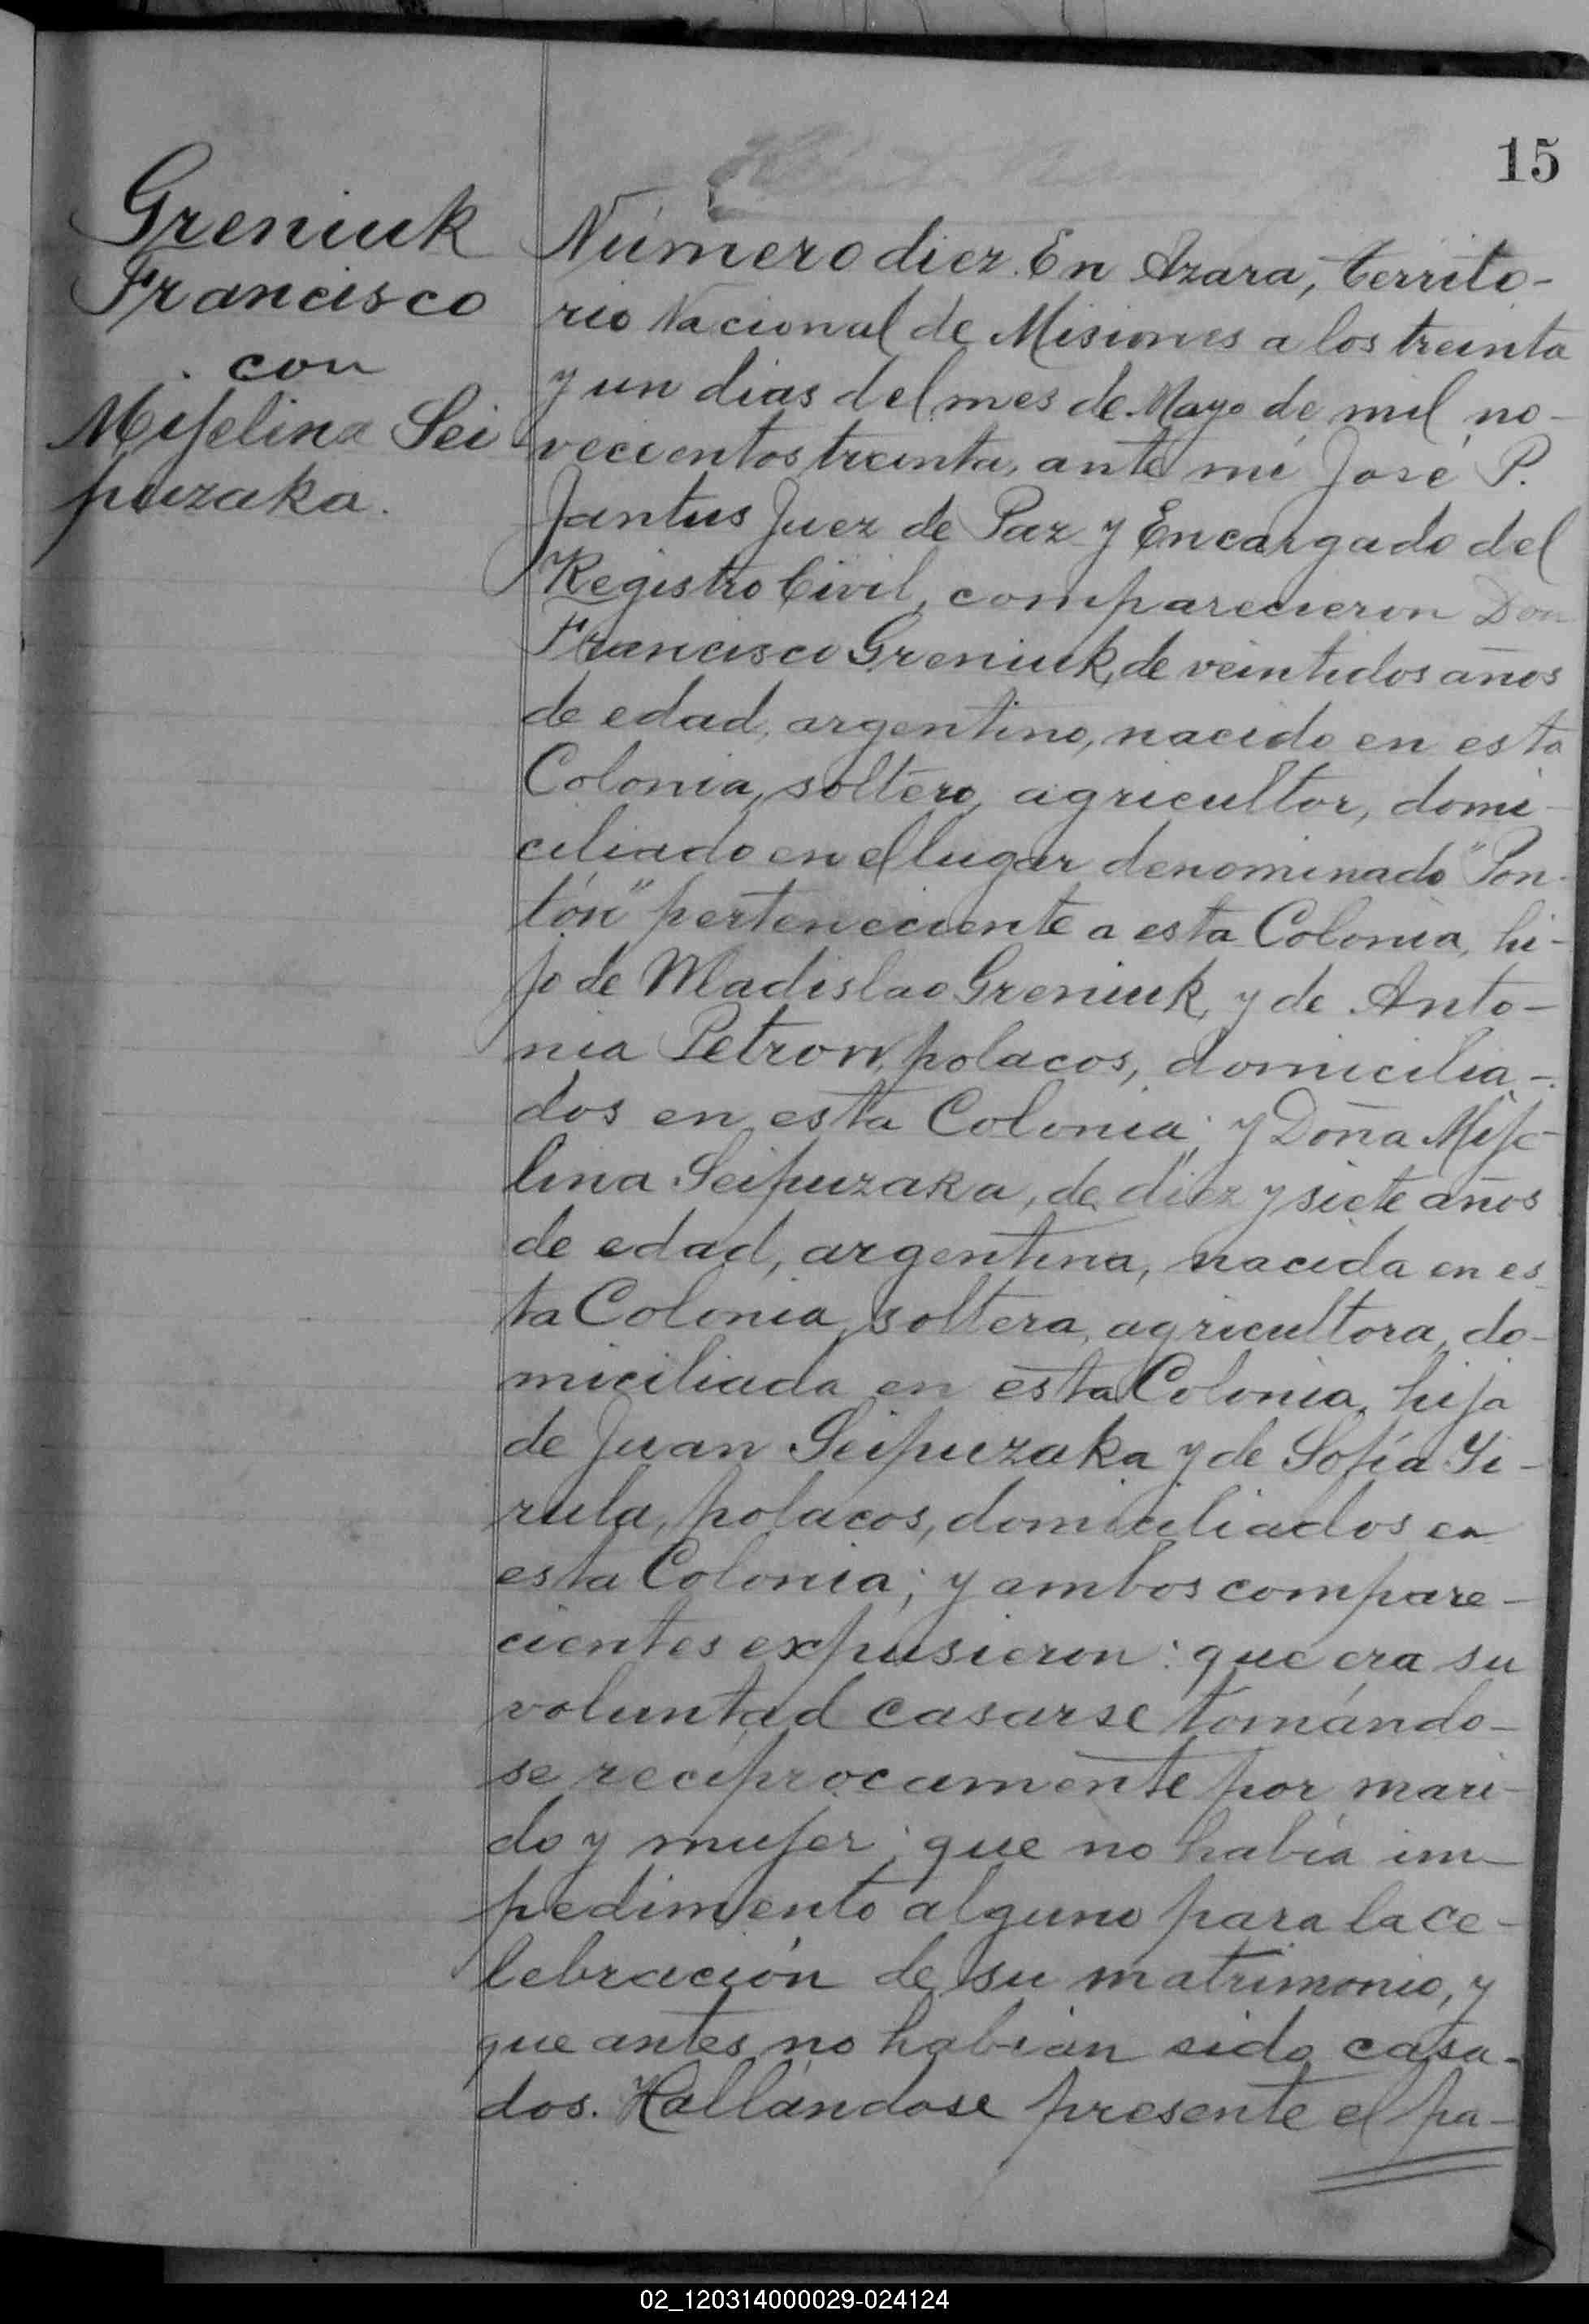 15
Greniuk
Francisco
con
Mijelina Sei
puzaka.
Número diez. En Azara, territo-
rio Nacional de Misiones a los treinta
y un dias del mes de Mayo de mil no-
vecientos treinta, ante mí José P.
Jantus Juez de Paz y Encargado del
Registro Civil, comparecieron Don
Francisco Greniuk, de veintidos años
de edad, argentino, nacido en esta
Colonia, soltero, agricultor, domi-
ciliado en el lugar denominado "Pon-
tón" perteneciente a esta Colonia, hi-
jo de Wladislao Greniuk, y de Anto-
nia Petrow, polacos, domicilia-
dos en esta Colonia; y Doña Mije-
lina Seipuzaka, de diez y siete años
de edad, argentina, nacida en es
ta Colonia, soltera, agricultora, do-
miciliada en esta Colonia, hija
de Juan Seipuzaka y de Sofía Yi-
rula, polacos, domiciliados en
esta Colonia; y ambos compare-
cientes expusieron: que era su
voluntad casarse tomándo-
se recíprocamente por mari-
do y mujer; que no había im-
pedimento alguno para la ce-
lebración de su matrimonio, y
que antes no habían sido casa-
dos. Hallándose presente el pa-
02_120314000029-024124